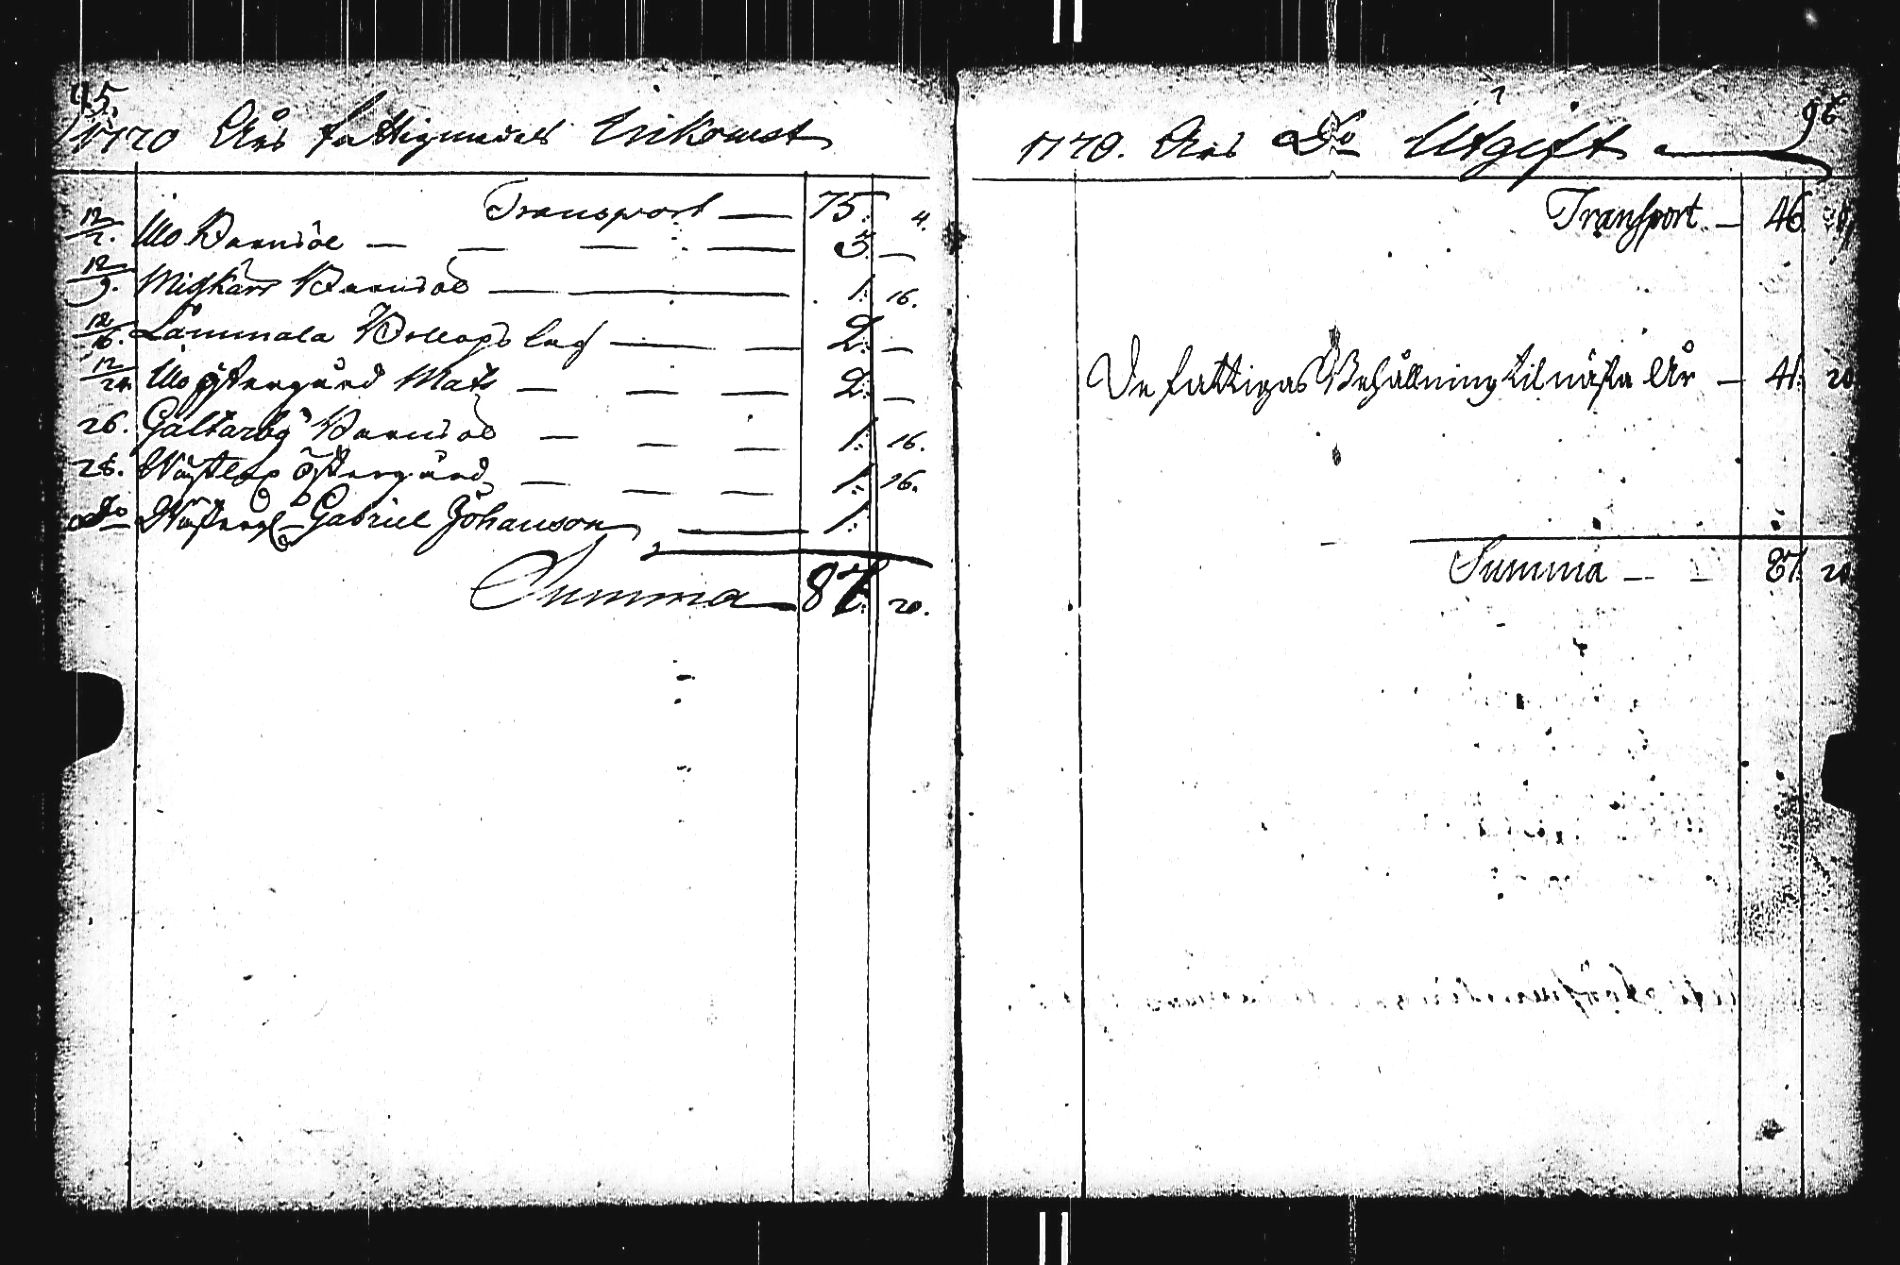 95.
1770 Års fattigmedels Inkomst
Transport — 75: 4.
12/2. Mo Barnsöl — — — — 3. —
12/9. Misskärr Barnsöl — — 1: 16.
12/16. Lammala Bollopslag — — 2: —
12/24. Mo östergård Mats — — — — 2: —
26. Galtarby Barnsöl — — — 1: 16.
28. Wästlax östergård — — — 1: 16.
Do Gabriel Johanson — 1:
Summa 87: 20.
96
1770. Års Do Utgift
Transport — 46.
De fattigas Behållning til nästa År — 41: 20
Summa — — 87: 20